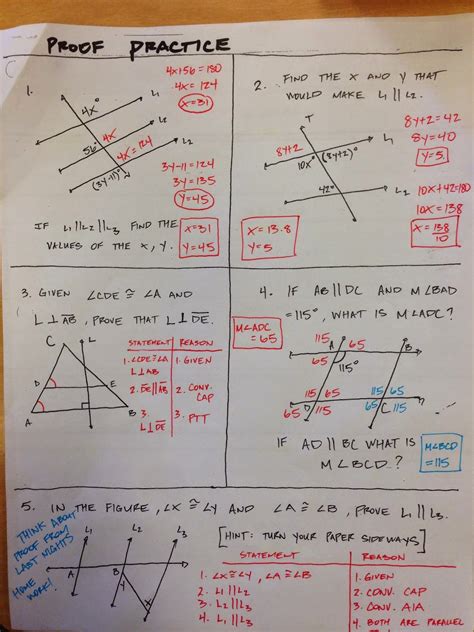 PROOF PRACTICE
1.
4x+56=180
4x=124
x=31
4x°
L1
56°
4x
L2
4x=124
L3
(3y-11)°
3y-11=124
3y=135
y=45
IF L1||L2||L3 FIND THE
VALUES OF THE X, Y.
x=31
y=45
2. FIND THE X AND Y THAT
WOULD MAKE L1||L2.
T
8y+2
L1
10x°
(8y+2)°
42°
L2
8y+2=42
8y=40
y=5
10x+42=180
10x=138
x=138
10
x=13.8
y=5
3. GIVEN ∠CDE≅∠A AND
L⊥AB, PROVE THAT L⊥DE.
C
L
D
E
A
B
STATEMENT
REASON
1. ∠CDE≅∠A
L⊥AB
1. GIVEN
2. DE||AB
2. CONV.
CAP
3.
L⊥DE
3. PTT
4. IF AB||DC AND M∠BAD
=115°, WHAT IS M∠ADC?
M∠ADC
=65
115
A
65
65
115°
B
115
65
65
D
115
115
65
65
C
115
IF AD||BC WHAT IS
M∠BCD?
M∠BCD
=115
5. IN THE FIGURE, ∠X≅∠Y AND ∠A≅∠B, PROVE L1||L3.
THINK ABOUT
PROOF FROM
LAST NIGHTS
HOME
WORK!
L1
L2
L3
A
B
Y
X
[HINT: TURN YOUR PAPER SIDEWAYS]
STATEMENT
REASON
1. ∠X≅∠Y, ∠A≅∠B
1. GIVEN
2. L1||L2
2. CONV. CAP
3. L2||L3
3. CONV. AIA
4. L1||L3
4. BOTH ARE PARALLEL